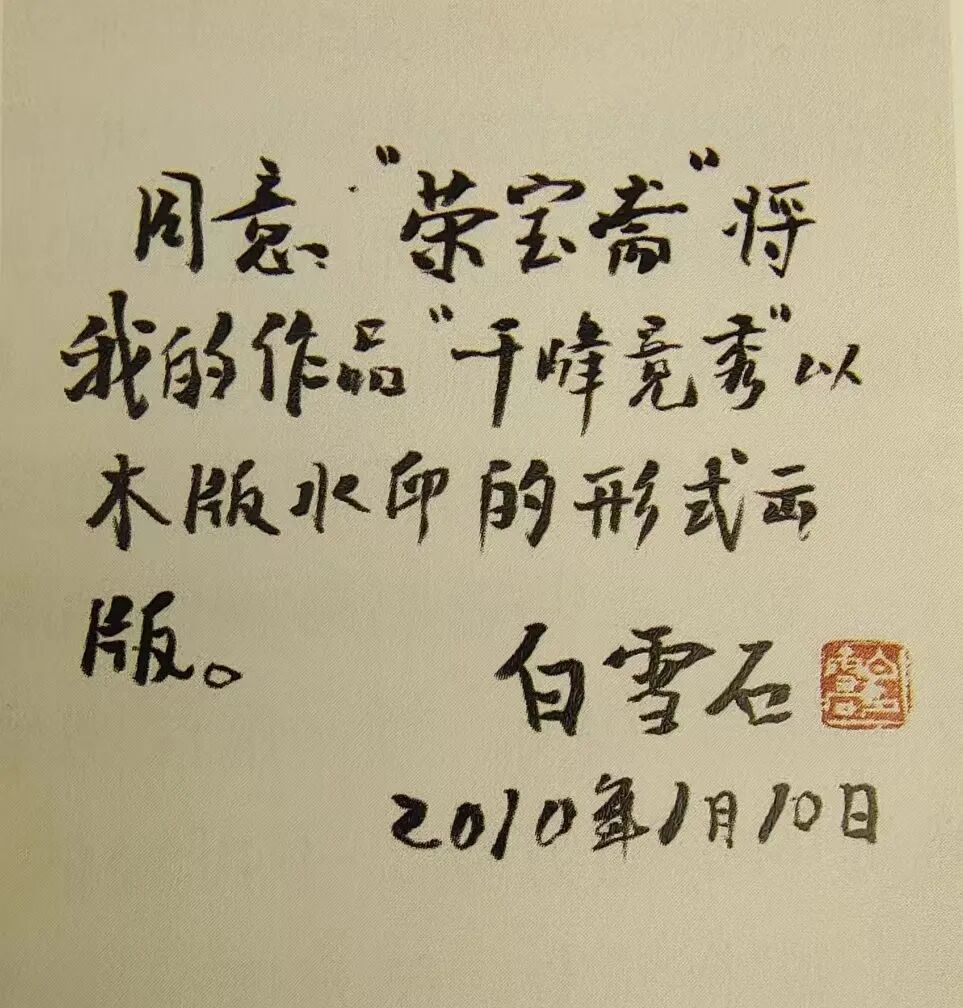 同意“荣宝斋”将
我的作品“千峰竞秀”以
木版水印的形式出
版。
白雪石
2010年1月10日